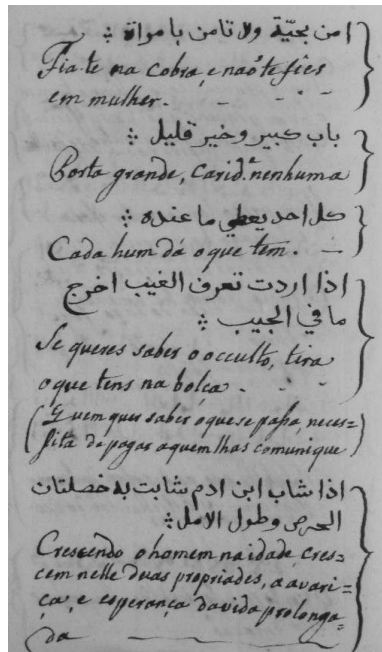 امن بحيّة ولا تامن بامراة
Fia-te na cobra, e naõ te fies
em mulher.
باب كبير وخير قليل
Porta grande, carid.ᵉ nenhuma
كل احد يعطي ما عنده
Cada hum dá o que tem.
اذا اردت تعرف الغيب اخرج
ما في الجيب
Se queres saber o occulto, tira
o que tens na bolça.
(Quem quer saber o que se passa, neces=
sita de pagar a quem lhas comunique)
اذا شاب ابن ادم شابت به خصلتان
الحرص وطول الامل
Crescendo o homem na idade, cres=
cem nelle duas propriades, a avari=
ça, e esperança da vida prolonga=
da